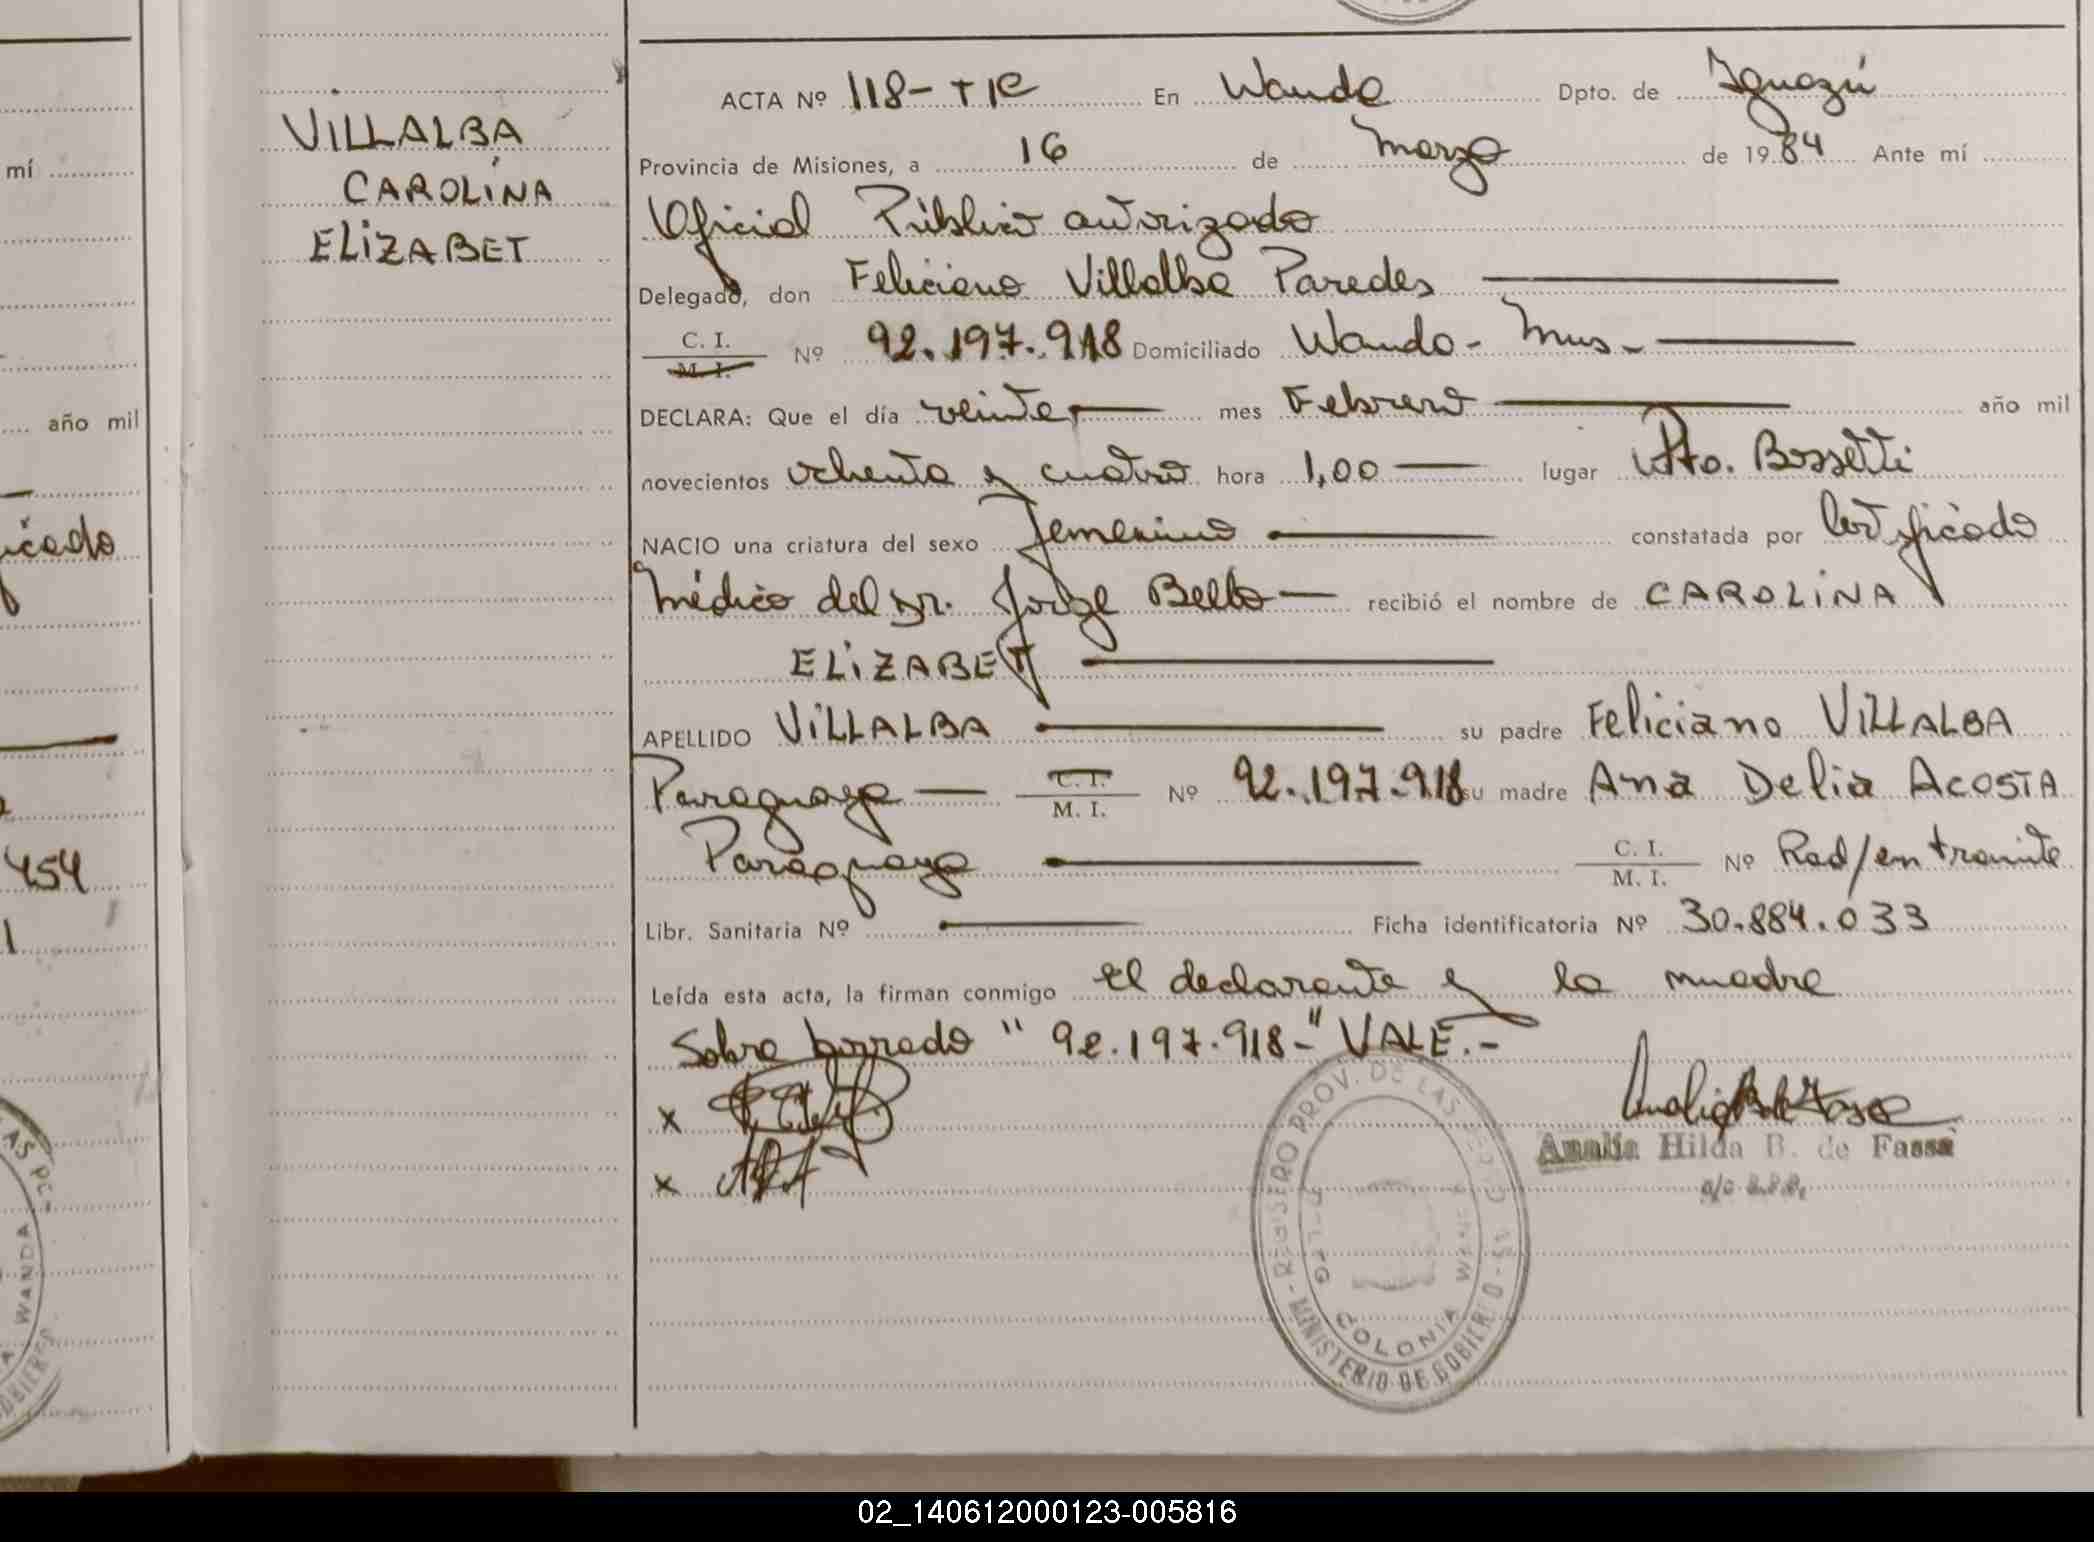 mí
año mil
454
1
WANDA
VILLALBA
CAROLINA
ELIZABET
ACTA Nº 118- TIC En Wanda Dpto. de Iguazú
Provincia de Misiones, a 16 de Marzo de 1984 Ante mí
Oficial Público autorizado
Delegado, don Feliciano Villalba Paredes
C. I.
M. I. Nº 92.197.918 Domiciliado Wanda- Mnes-
DECLARA: Que el día veinte mes Febrero año mil
novecientos ochenta y cuatro hora 1,00 lugar Pto. Bossetti
NACIO una criatura del sexo femenino constatada por Certificado
Médico del Dr. Jorge Bello recibió el nombre de CAROLINA
ELIZABET
APELLIDO VILLALBA su padre Feliciano VILLALBA
Paraguaya C. I. M. I. Nº 92.197.918 su madre Ana Delia ACOSTA
Paraguaya C. I. M. I. Nº Rad/en tramite
Libr. Sanitaria Nº Ficha identificatoria Nº 30.884.033
Leída esta acta, la firman conmigo el declarante y la madre
Sobre borrado "92.197.918-" VALE.-
x
x
Amalia Hilda B. de Fassa
REGISTRO PROV. DE LAS
MINISTERIO DE GOBIERNO
COLONIA WANDA
02_140612000123-005816